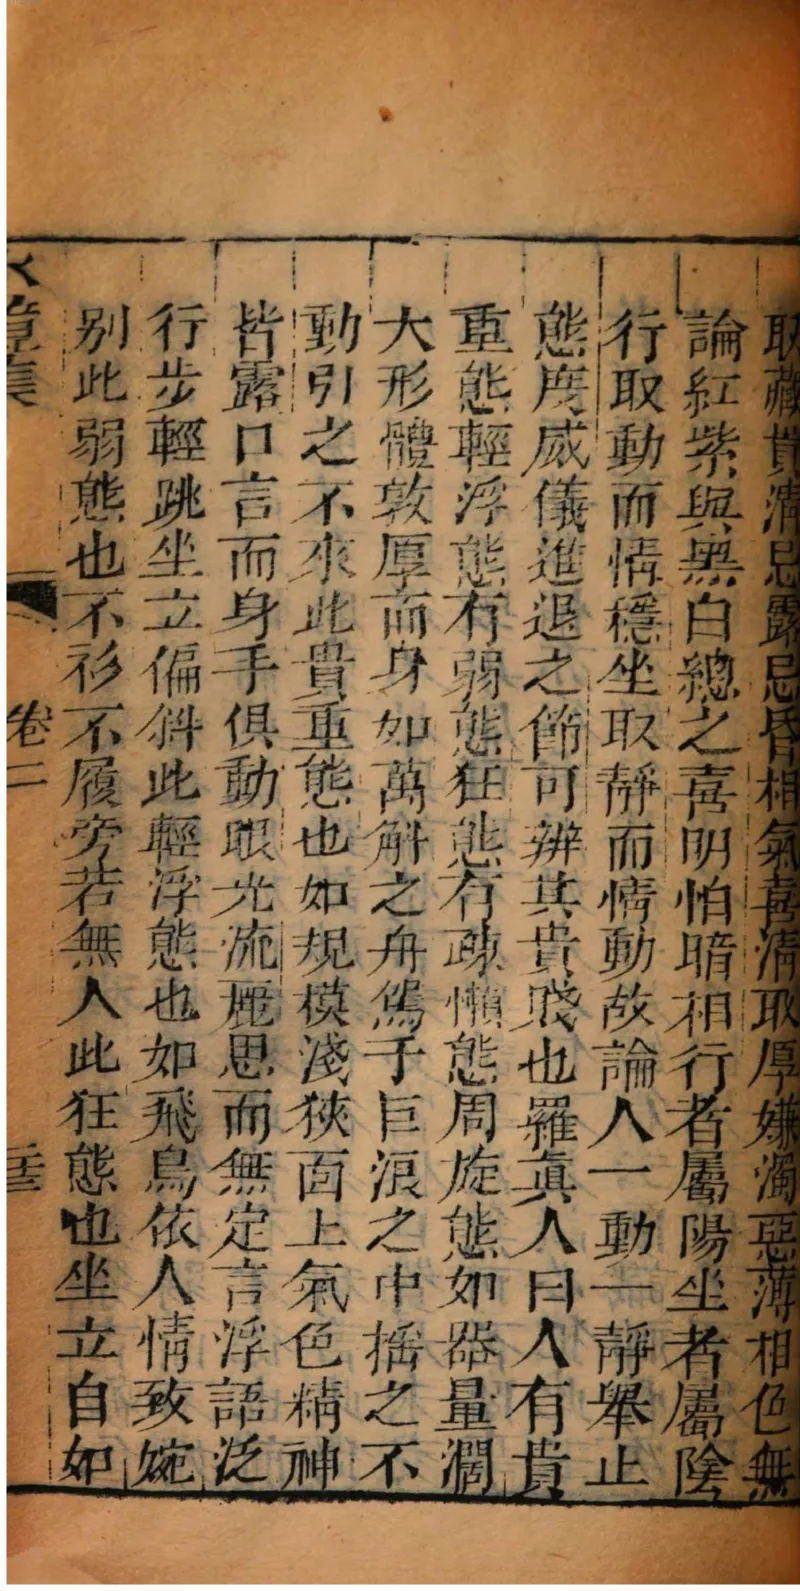 取藏貴清忌露忌昏相氣喜清取厚嫌濁惡薄相色無
論紅紫與黑白總之喜明怕暗相行者屬陽坐者屬陰
行取動而情穩坐取靜而情動故論人一動一靜舉止
態度威儀進退之節可辨其貴賤也羅眞人曰人有貴
重態輕浮態有弱態狂態有疎懶態周旋態如器量濶
大形體敦厚而身如萬斛之舟駕于巨浪之中搖之不
動引之不來此貴重態也如規模淺狹面上氣色精神
皆露口言而身手俱動眼光流麗思而無定言浮語泛
行步輕跳坐立偏斜此輕浮態也如飛鳥依人情致婉
別此弱態也不衫不履旁若無人此狂態也坐立自如
卷二